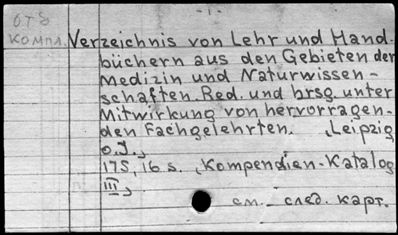 - 1 -
ОТ8
КОМПЛ.
Verzeichnis von Lehr und Hand.
büchern aus den Gebieten der
Medizin und Naturwissen-
schaften. Red. und hrsg. unter
Mitwirkung von hervorragen-
den Fachgelehrten. Leipzig
o.J.,
175, 16 s. „Kompendien-Katalog
III”,
см. след. карт.